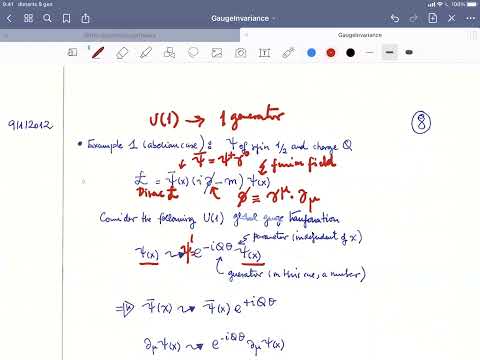 9:41 dimarts 8 gen
100%
GaugeInvariance
GaugeInvariance
U(1) → 1 generator
9/11/2012
8
• Example 1 (abelian case): Ψ of spin 1/2 and charge Q
Ψ̄ = Ψ⁺γ⁰
fermion field
ℒ = Ψ̄(x) (i∂̸ − m) Ψ(x)
Dirac ℒ
∂̸ ≡ γ^μ · ∂_μ
Consider the following U(1) global gauge transformation
parameter (independent of x)
Ψ(x) ⇝ Ψ' = e^{-iQθ} Ψ(x)
generator (in this case, a number)
⇒ Ψ̄(x) ⇝ Ψ̄(x) e^{+iQθ}
∂_μ Ψ(x) ⇝ e^{-iQθ} ∂_μ Ψ(x)